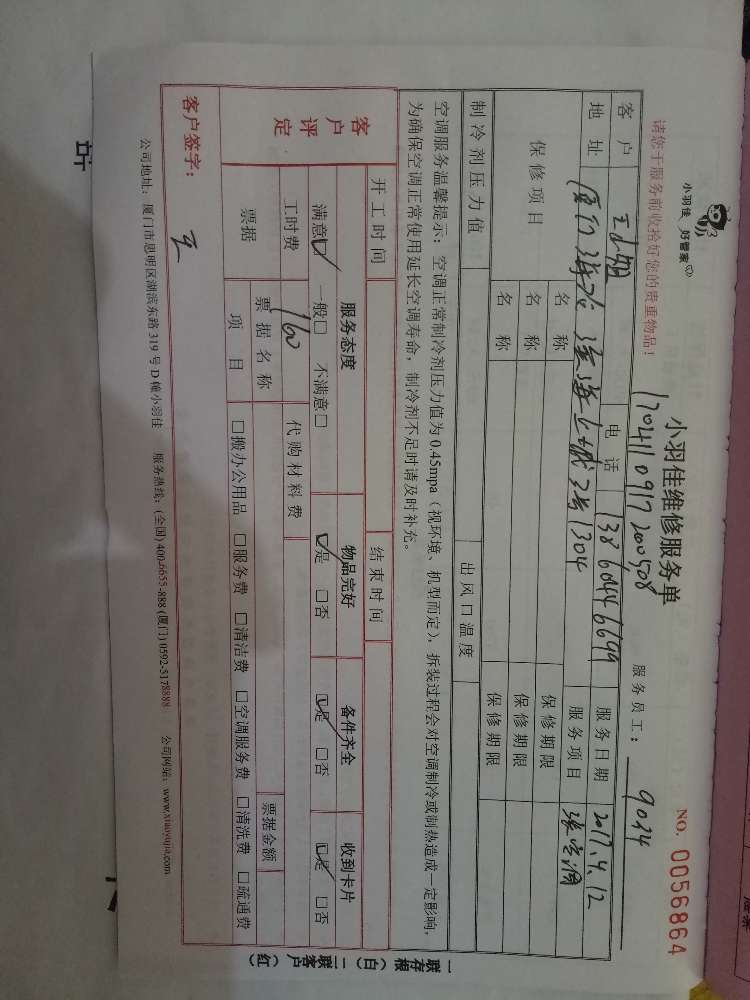 小羽佳 好管家
小羽佳维修服务单
NO. 0056864
1704110917200508
请您于服务前收拾好您的贵重物品!
服务员工: 9034
客户 王小姐 电话 13860446699 服务日期 2017.4.12
地址 厦门 海沧 3号1304 服务项目 空调
保修项目 名称 保修期限
名称 保修期限
名称 保修期限
制冷剂压力值 出风口温度
空调服务温馨提示:空调正常制冷剂压力值为0.45mpa(视环境、机型而定),拆装过程会对空调制冷或制热造成一定影响,
为确保空调正常使用延长空调寿命,制冷剂不足时请及时补充。
开工时间 结束时间
客户评定 服务态度 物品完好 备件齐全 收到卡片
满意☑ 一般□ 不满意□ ☑是 □否 ☑是 □否 ☑是 □否
工时费 160 代购材料费
票据 票据名称 票据金额
项目 □搬办公用品 □服务费 □清洁费 □空调服务费 □清洗费 □疏通费
客户签字: 王
公司地址:厦门市思明区湖滨东路319号D幢小羽佳 服务热线:(全国)400-6655-888 (厦门)0592-5178888 公司网站:www.xiaoyujia.com
一联存根(白) 二联客户(红)